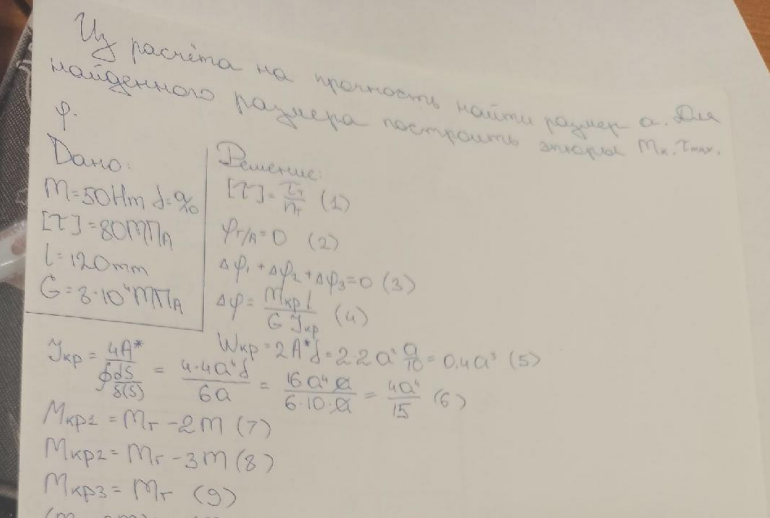 Из расчёта на прочность найти размер a. Для
найденного размера построить эпюры Mк, τmax,
φ.
Дано:
M=50Нm δ=a/10
[τ]=80МПа
l=120mm
G=8·10⁴МПа
Решение:
[τ]=τт/nт (1)
φг/A=0 (2)
Δφ₁+Δφ₂+Δφ₃=0 (3)
Δφ=Mкр l/G Jкр (4)
Wкр=2A*δ=2·2a² a/10=0,4a³ (5)
Jкр = 4A*/∮dS/δ(S) = 4·4a⁴δ/6a = 16a⁴a/6·10·a = 4a⁴/15 (6)
Mкр1=Mг-2M (7)
Mкр2=Mг-3M (8)
Mкр3=Mг (9)